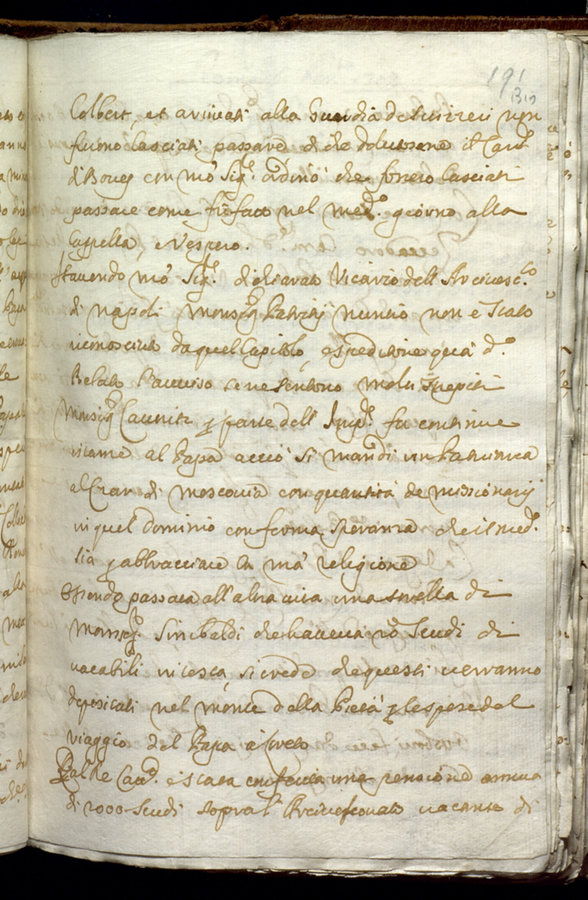 191
310
Colbert, et arrivati alla Guardia de Svizzeri non
furono lasciati passare di che dolutosene il Card.
di Boves con N'ro Sig.re ordinò che fossero lasciati
passare come fu fatto nel med.o giorno alla
Cappella, e Vespero.
Havendo N'ro Sig.re dichiarato Vicario dell'Arcivesc.to
di Napoli Monsig.r Nuntio non è stato
riconosciuto da quel Capitolo, e speditione quà d.o
Prelato l'avviso se ne sentono molti strepiti
Monsig.r Caunitz p parte dell' Imp.re fa continue
istanze al Papa acciò si mandi un Patriarca
al Czar di Moscovia con quantità de missionarij
in quel dominio con ferma speranza che il med.o
sia p abbracciare la n'ra religione
Essendo passata all'altra vita una sorella di
Monsig.r Sinibaldi che haveva Scudi di
vacabili in testa, si crede che questi verranno
depositati nel Monte della Pietà p le spese del
viaggio del Papa a Loreto
Al Card. è stata conferita una pensione annua
di 2000 Scudi sopra l'Arcivescovato vacante di